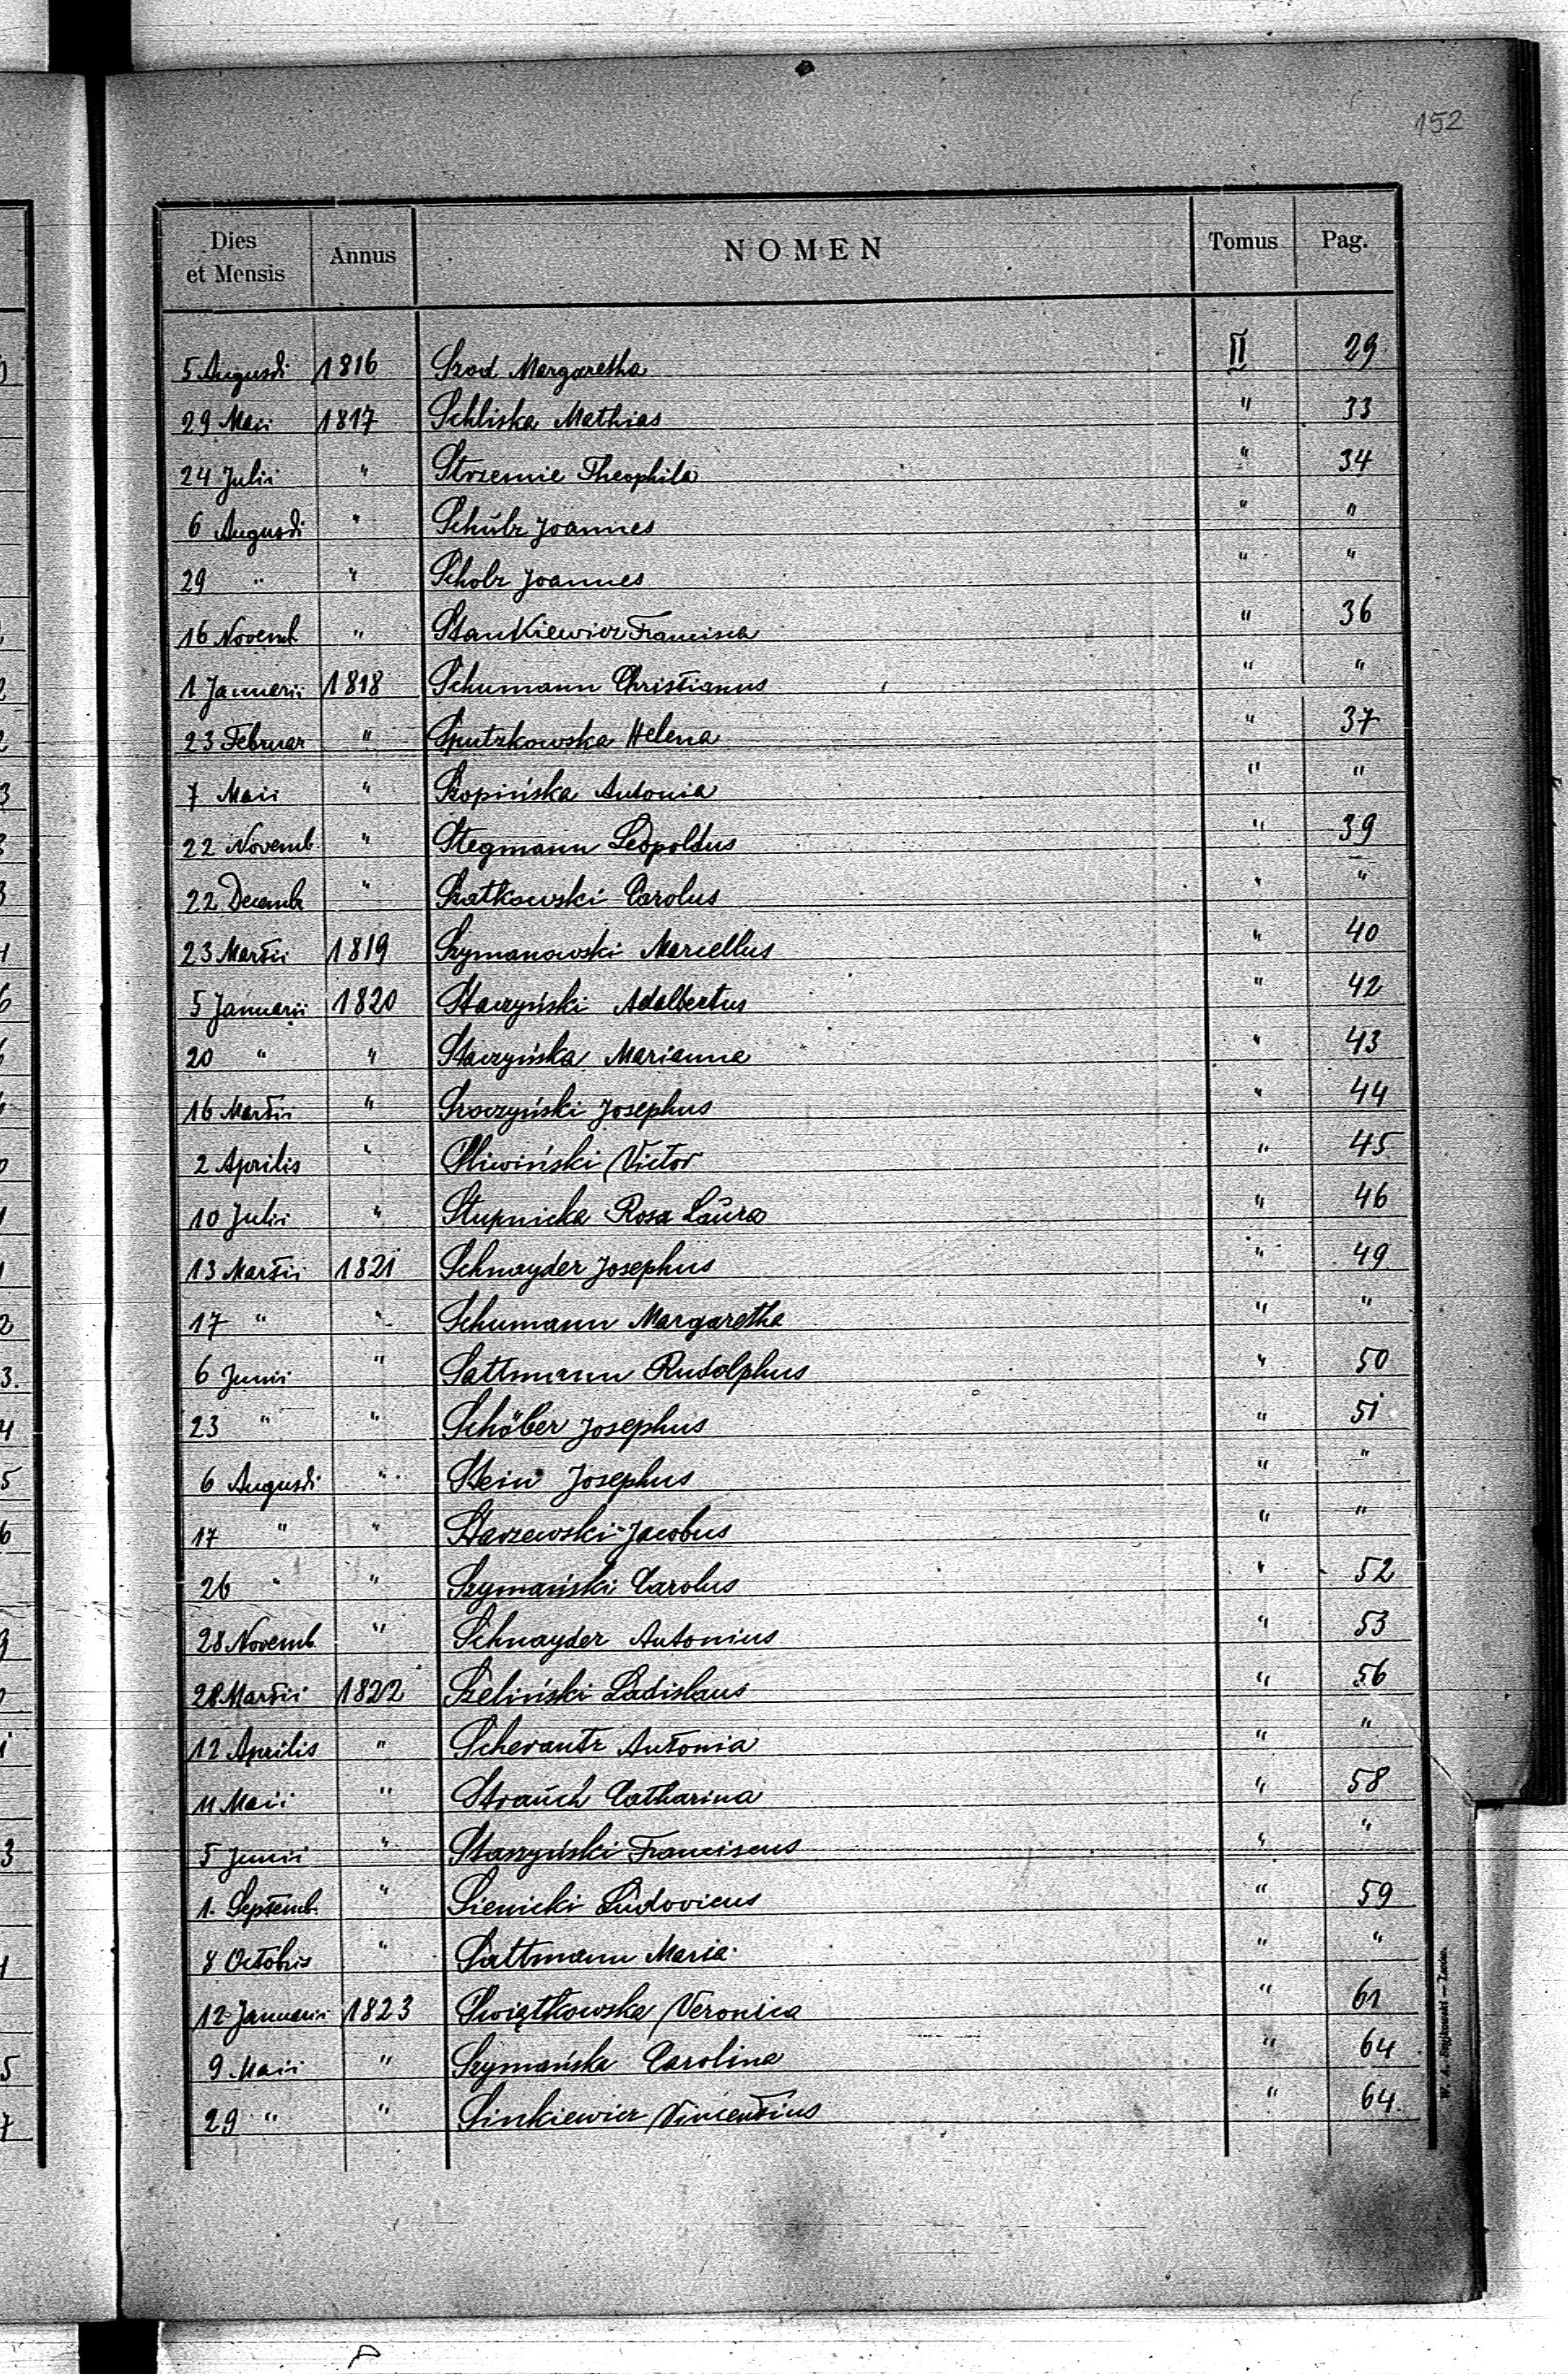 152
Dies et Mensis Annus NOMEN Tomus Pag.
5 Augusti 1816 Szod Margaretha II 29
29 Maii 1817 Schliska Mathias " 33
24 Julii " Strzemie Theophila " 34
6 Augusti " Schulz Joannes " "
29 " " Scholz Joannes " "
16 Novemb. " Stankiewicz Francisca " 36
1 Januarii 1818 Schumann Christianus " "
23 Februar " Sputzkowska Helena " 37
7 Maii " Szopińska Antonia " "
22 Novemb. " Stegmann Leopoldus " 39
22 Decemb " Szatkowski Carolus " "
23 Martii 1819 Szymanowski Marcellus " 40
5 Januarii 1820 Staczyński Adalbertus " 42
20 " " Staczyńska Marianna " 43
16 Martii " Szoczyński Josephus " 44
2 Aprilis " Sliwiński Victor " 45
10 Julii " Stupnicka Rosa Laura " 46
13 Martii 1821 Schnayder Josephus " 49
17 " " Schumann Margaretha " "
6 Junii " Sattmann Rudolphus " 50
23 " " Schöber Josephus " 51
6 Augusti " Stein Josephus " "
17 " " Starzewski Jacobus " "
26 " " Szymański Carolus " 52
28 Novemb. " Schnayder Antonius " 53
28 Martii 1822 Szeliński Ladislaus " 56
12 Aprilis " Scherautz Antonia " "
11 Maii " Strauch Catharina " 58
5 Junii " Staszyński Franciscus " "
1. Septemb. " Sienicki Ludovicus " 59
8 Octobris " Sattmann Maria " "
12 Januarii 1823 Swiątkowska Veronica " 61
9 Maii " Szymańska Carolina " 64
29 " " Sinkiewicz Vincentius " 64